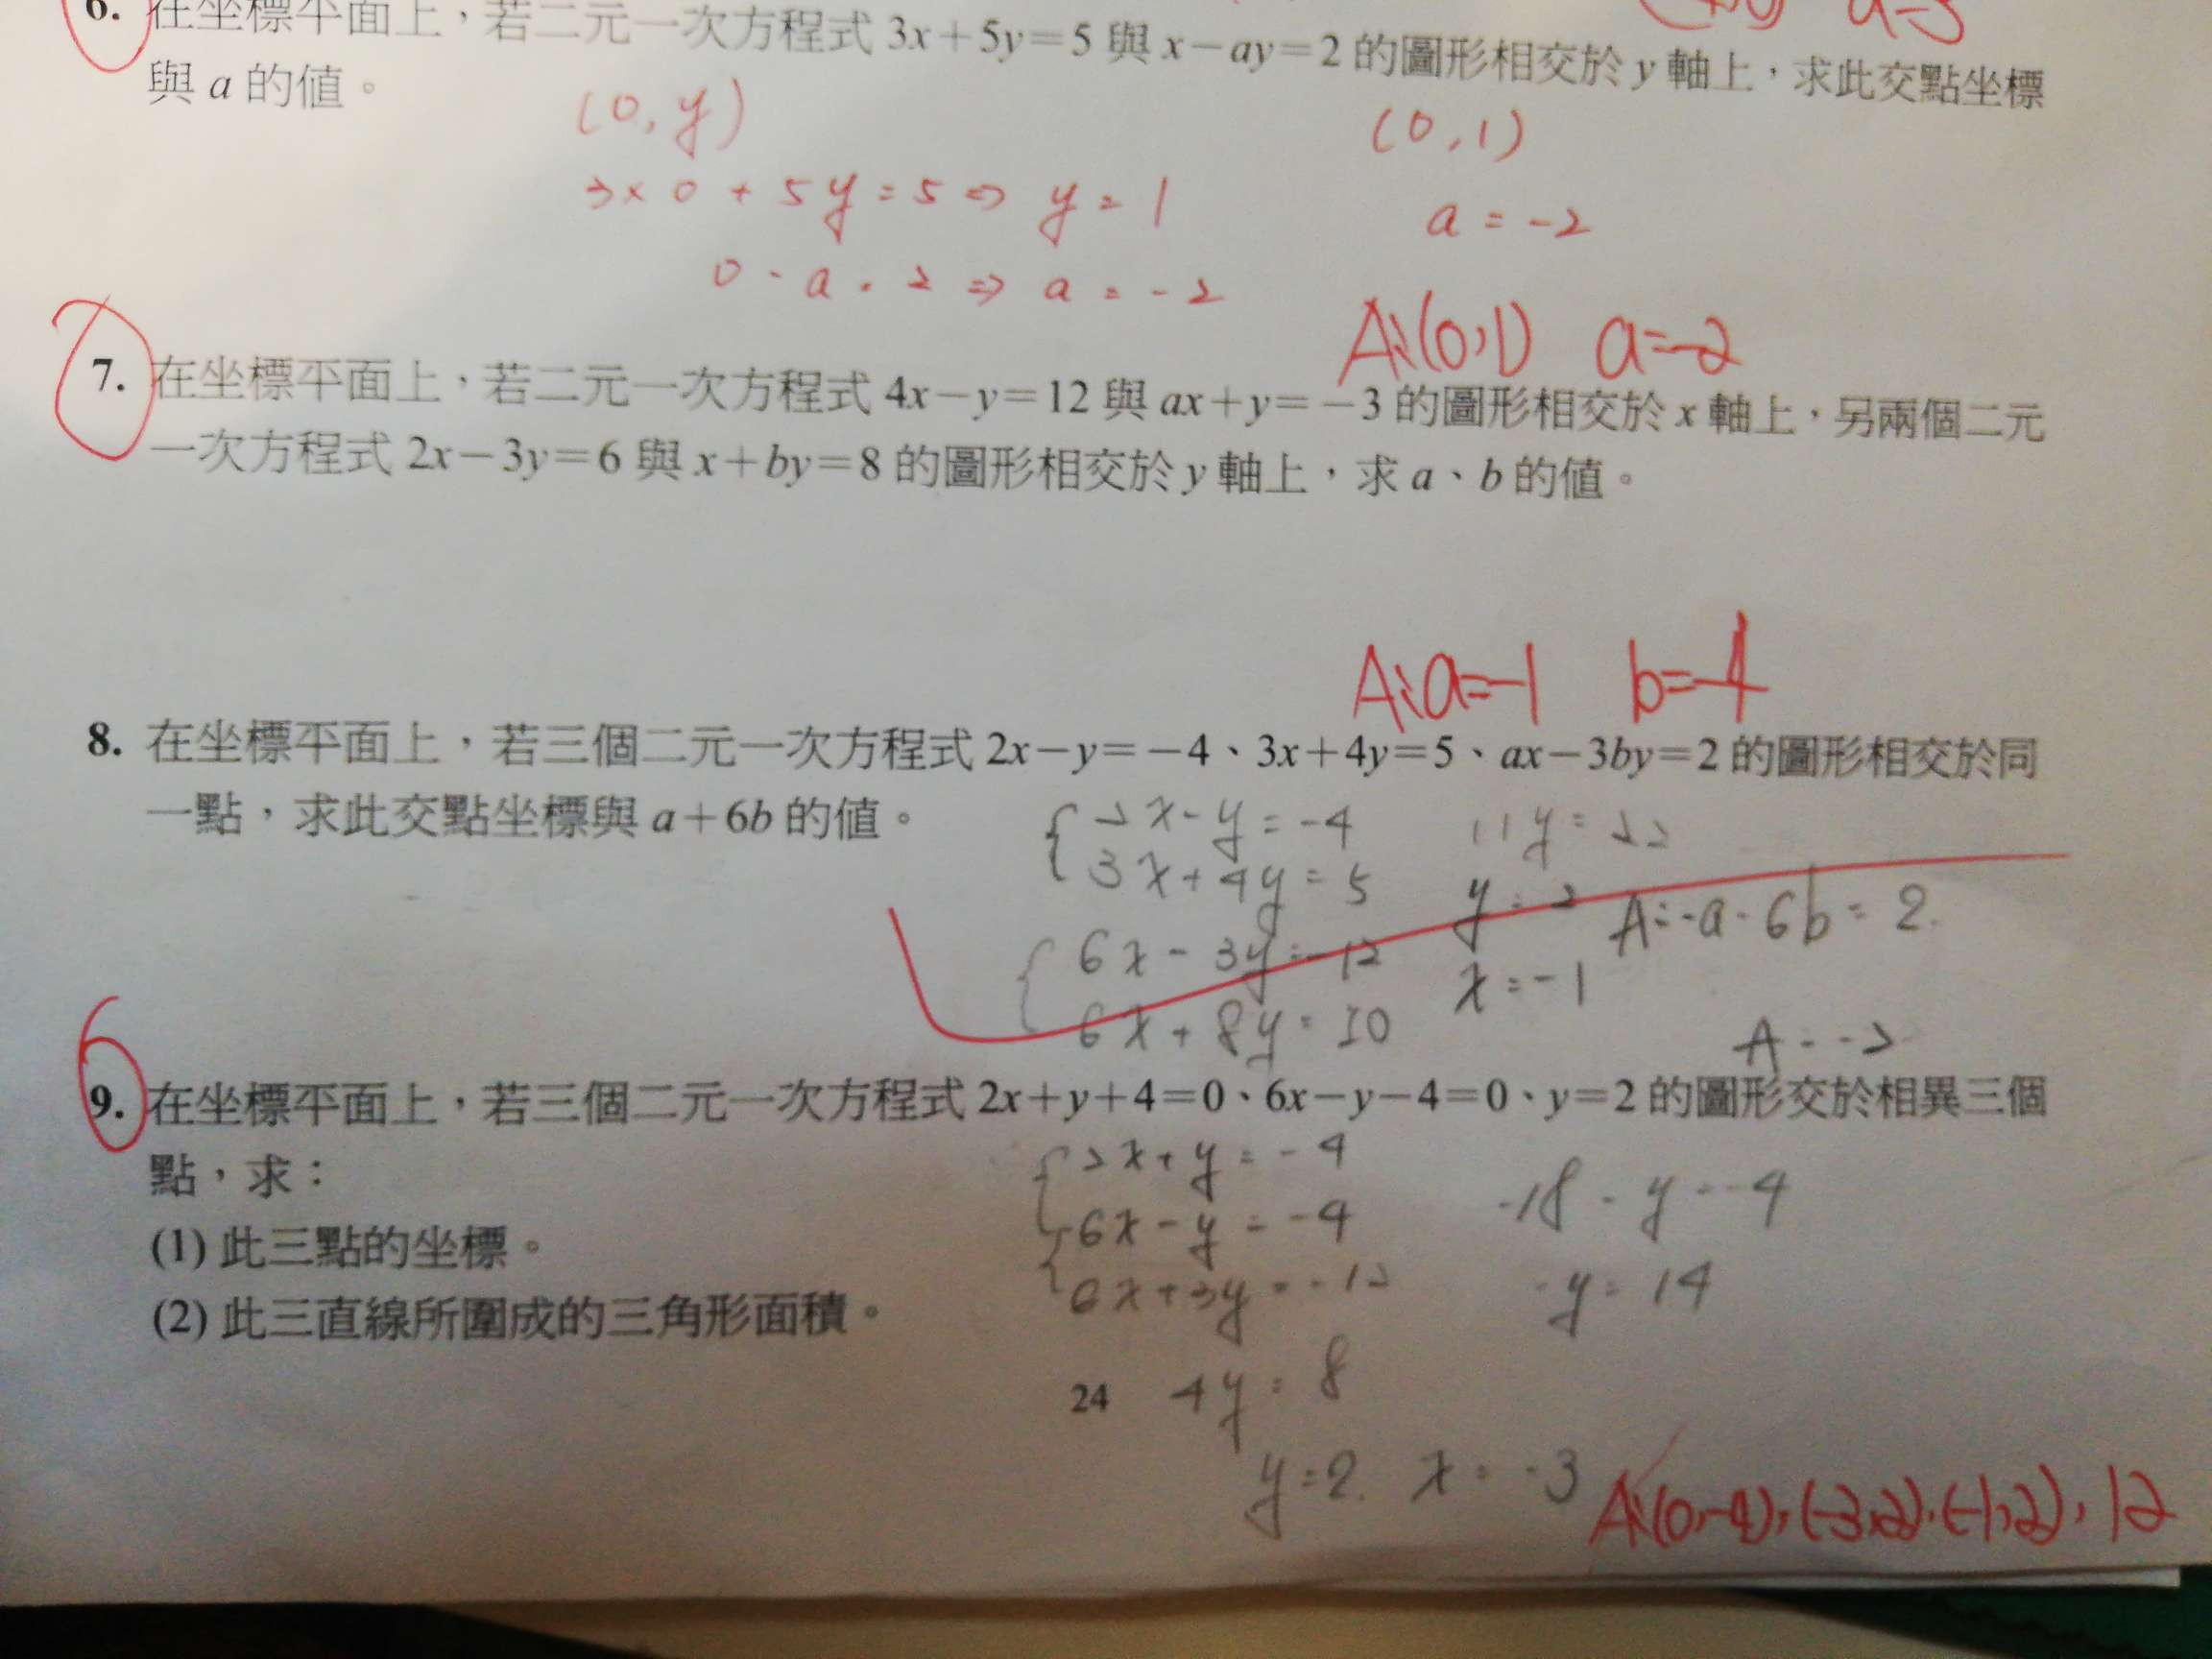 6. 在坐標平面上，若二元一次方程式 3x+5y=5 與 x-ay=2 的圖形相交於 y 軸上，求此交點坐標
與 a 的值。
(0,y)
(0,1)
3×0+5y=5⇒y=1
a=-2
0-a=2⇒a=-2
A:(0,1) a=-2
7. 在坐標平面上，若二元一次方程式 4x-y=12 與 ax+y=-3 的圖形相交於 x 軸上，另兩個二元
一次方程式 2x-3y=6 與 x+by=8 的圖形相交於 y 軸上，求 a、b 的值。
A:a=-1 b=-4
8. 在坐標平面上，若三個二元一次方程式 2x-y=-4、3x+4y=5、ax-3by=2 的圖形相交於同
一點，求此交點坐標與 a+6b 的值。
2x-y=-4 11y=22
3x+4y=5 y=2 A:-a-6b=2.
6x-3y=-12 x=-1
6x+8y=10
A=-2
9. 在坐標平面上，若三個二元一次方程式 2x+y+4=0、6x-y-4=0、y=2 的圖形交於相異三個
點，求：
(1) 此三點的坐標。
(2) 此三直線所圍成的三角形面積。
2x+y=-4
6x-y=-4
6x+3y=-12
-18-y=-4
-y=14
4y=8
24
y=2. x=-3
A:(0,-4),(-3,2),(-1,2),12